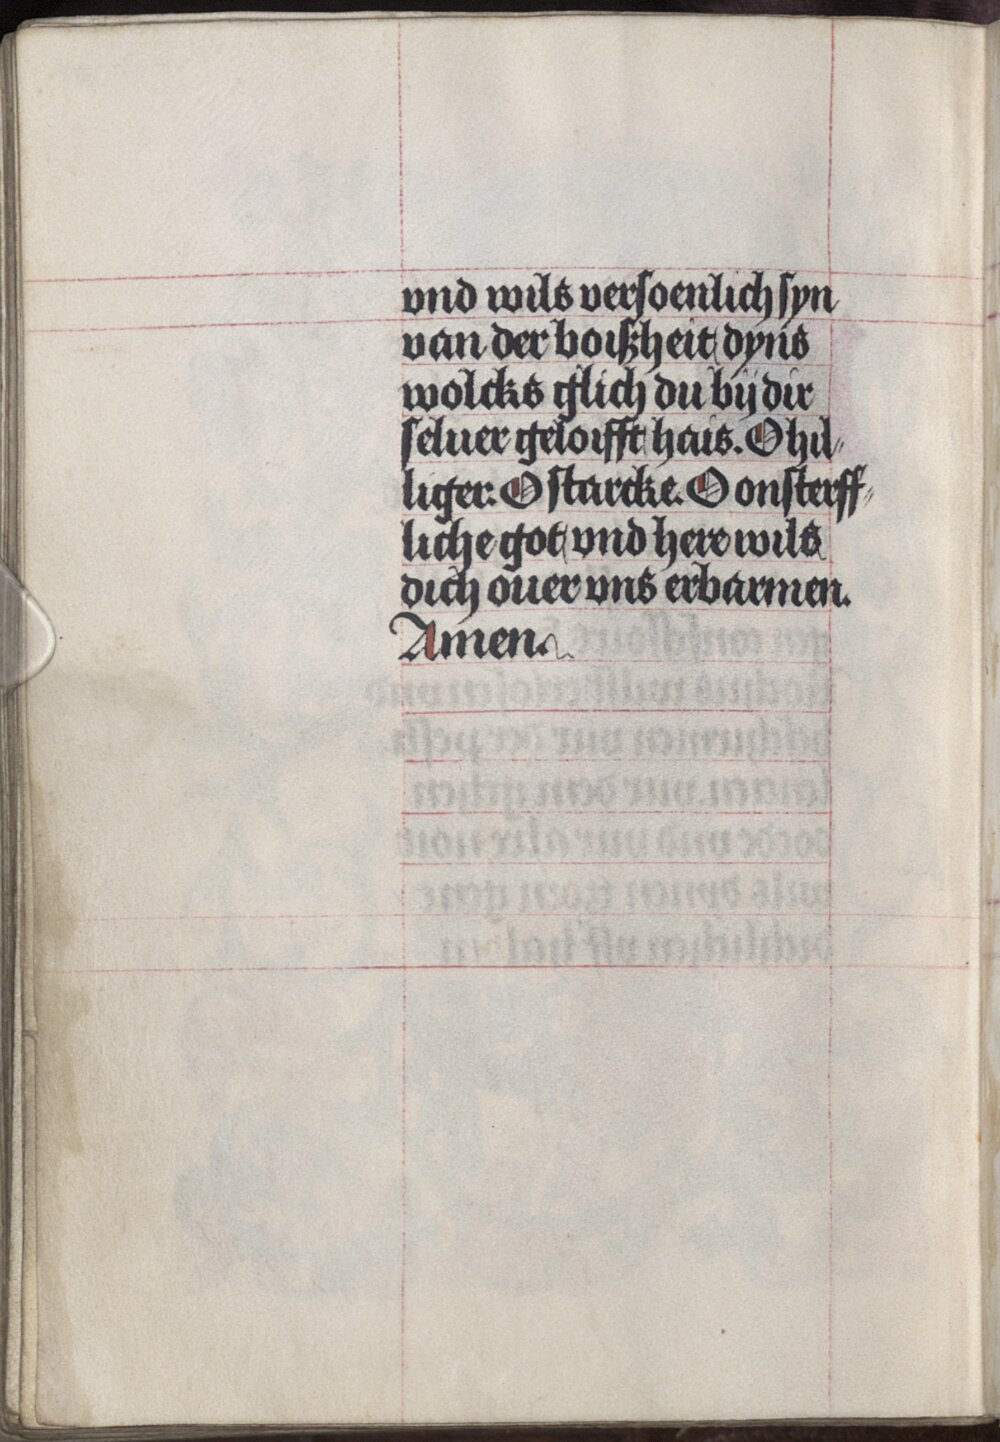 vnd wils versoenlich syn
van der boißheit dyns
wolcks glich du bij dir
seluer geloifft hais. O hil〃
liger: O starcke. O onsterff〃
liche got vnd here wils
dich ouer vns erbarmen.
Amen.